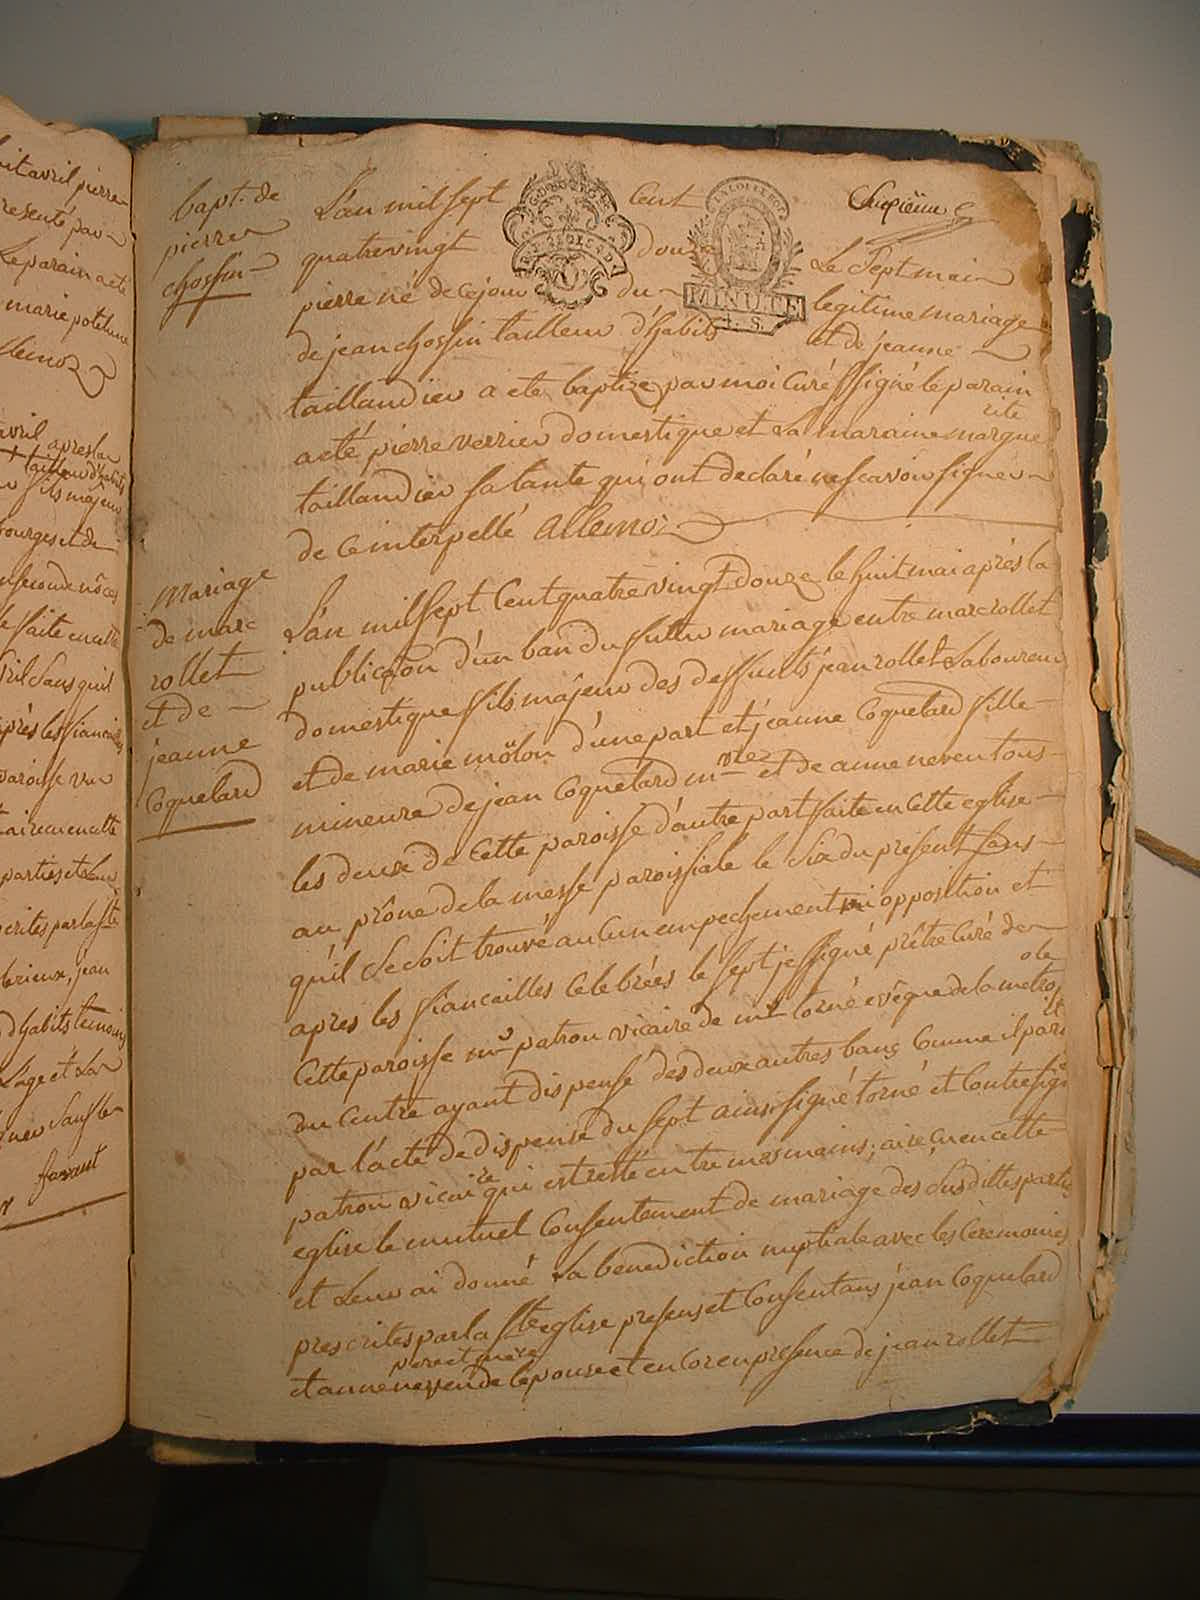 bapt. de
pierre
chossin
L'an mil sept cent
quatrevingt douze Le Sept mai
pierre né de ce jour du légitime mariage
MINUTE
4. S.
de jean chossin tailleur d'habits et de jeanne
taillandier a eté baptizé par moi Curé ssigné le parain
a eté pierre verrier domestique et La maraine margue
rite
taillandier sa tante qui ont declaré ne scavoir signer
de ce interpellé allemoz
Mariage
de marc
rollet
et de
jeanne
Coquelard
L'an mil sept Cent quatre vingt douze le huit mai après la
publica͠on d'un ban du futur mariage entre marc rollet
domestique fils majeur des deffunts jean rollet Laboureur
et de marie môlon d'une part et jeanne Coquelard fille
mineure de jean Coquelard m vre et de anne neveu tous
les deux de Cette paroisse d'autre part faite en Cette eglise
au prône de la messe paroissiale le Six du présent sans
qu'il se soit trouvé aucun empechement ni opposition et
après les fiancailles Celebrées le sept je ssigné prêtre Curé de
Cette paroisse mr patron vicaire de mr torné evêque de la metro
ole
du Centre ayant dispensé des deux autres bans Comme il par
it
par l'acte de dispense du sept ainsi signé torné et Contresigné
patron vicaire qui est resté entre mes mains; ai reçu en cette
eglise le mutuel Consentement de mariage des susdittes parties
et Leur ai donné La benediction nuptiale avec les Ceremonies
prescrites par la Ste eglise presens et Consentans jean Coquelard
pere et mère
et anne neveu de l'epouse et encor en presence de jean rollet
avril pierre
presenté par
Le parain a eté
marie
avril après la
tailleur d'habits
fils majeur
bourges et de
en seconde nôces
faite en cette
sans qu'il
après les fiancailles
paroisse
ai reçu en cette
parties et Leur
crites par la Ste
jean
d'habits temoins
L'age et La
favaut